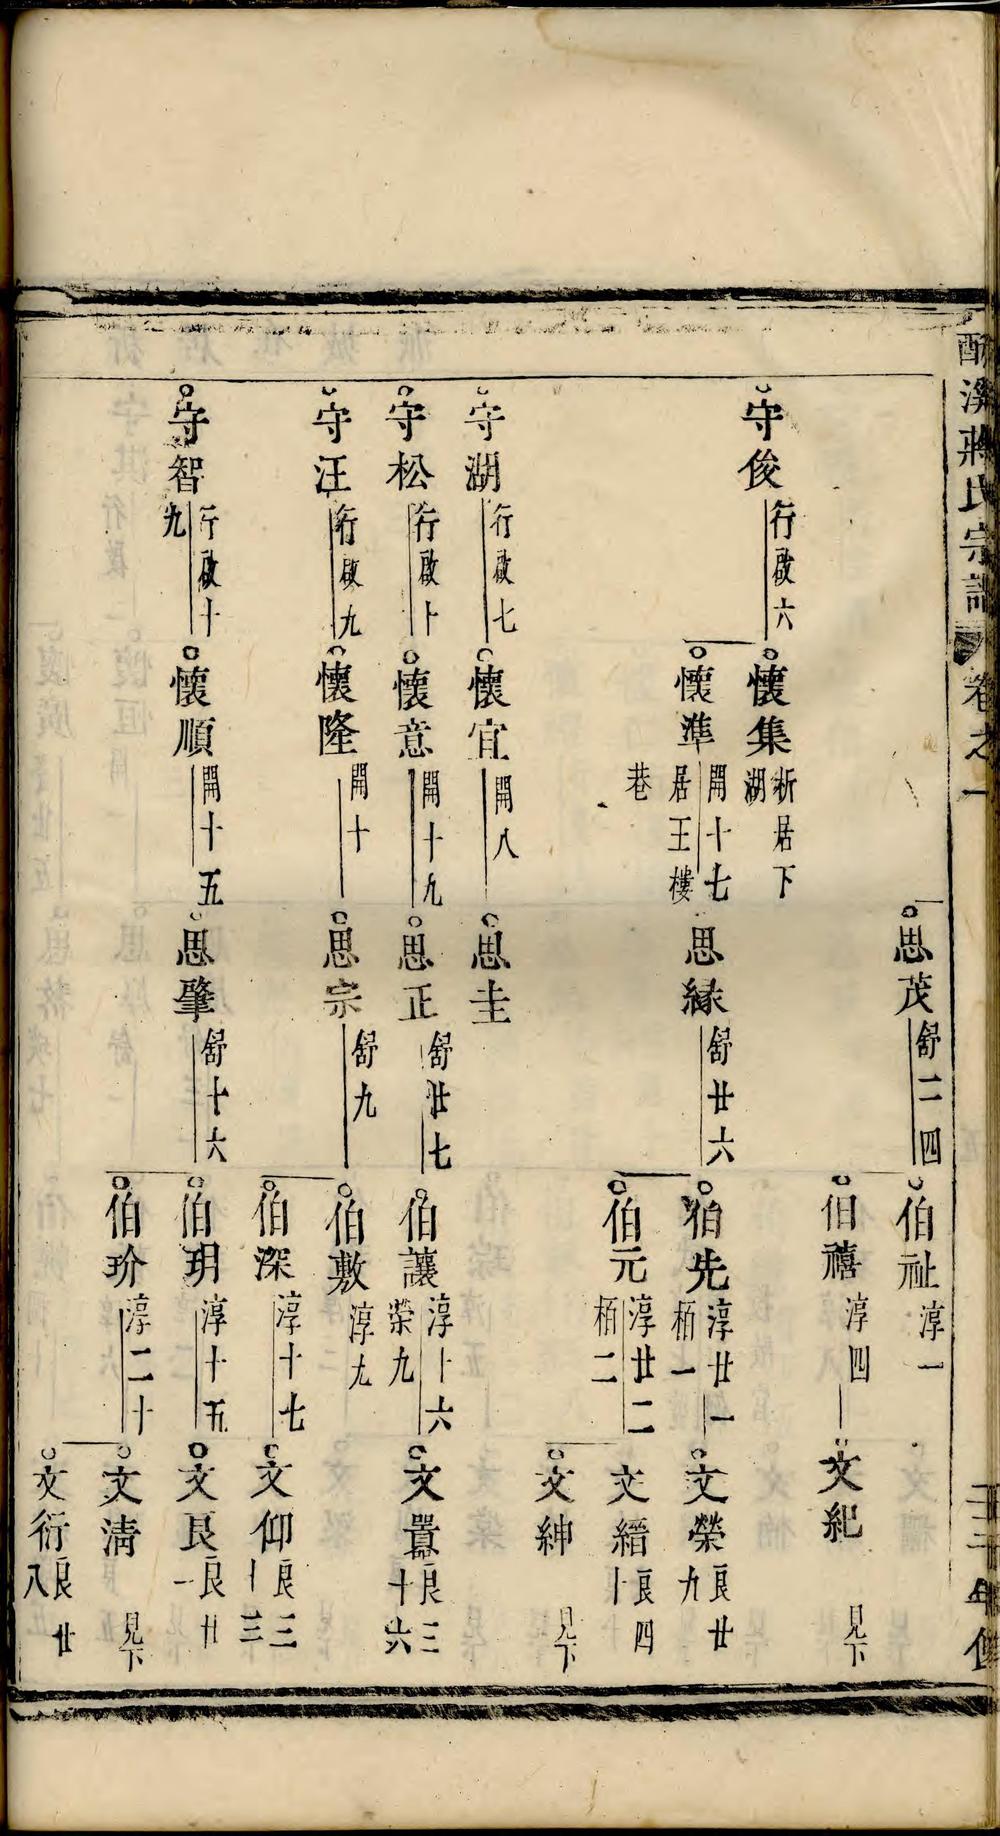 蔣氏宗譜
卷之一
思茂
舒二四
伯祉
淳一
伯禧
淳四
文紀
見下
守俊
行啟六
懷集
析居下
湖
懷準
開十七
居王樓
巷
思緣
舒廿六
伯先
淳廿一
栢一
文榮
良廿
九
伯元
淳廿二
栢二
文縉
良四
十
文紳
見下
守湖
行啟七
懷宜
開八
思圭
守松
行啟十
懷意
開十九
思正
舒廿七
伯讓
淳十六
榮九
文囂
良三
十六
守汪
行啟九
懷隆
開十
思宗
舒九
伯敷
淳九
伯深
淳十七
文仰
良三
十三
守智
行啟十
九
懷順
開十五
思肇
舒十六
伯玥
淳十五
文艮
良廿
一
伯玠
淳二十
文清
見下
文衍
良廿
八